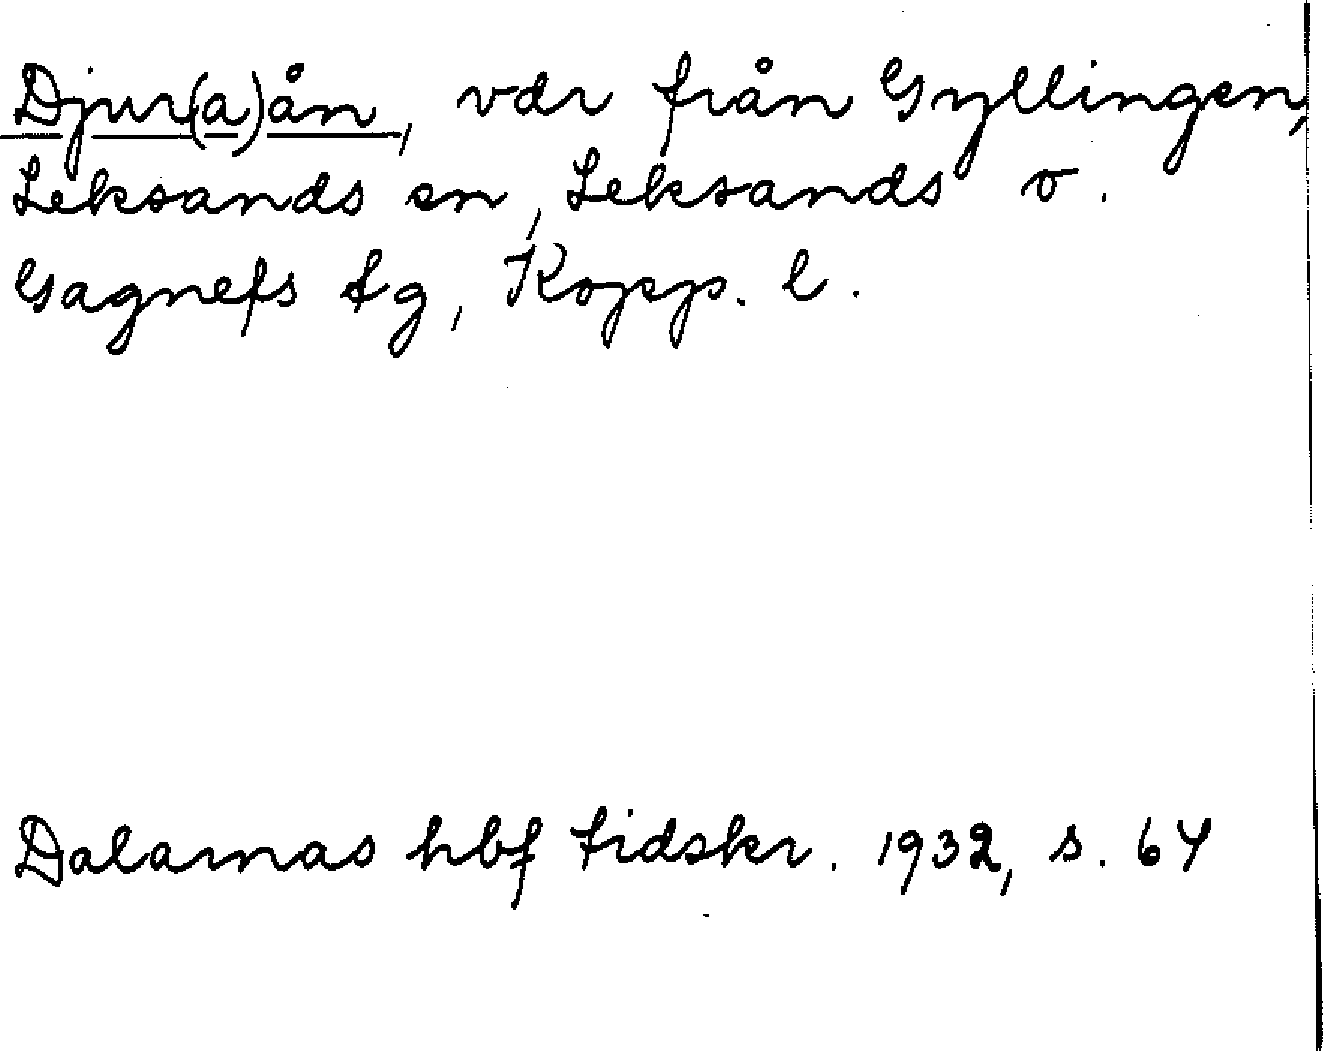 Djur(a)ån, vdr från Gyllingen,
Leksands sn, Leksands o.
Gagnefs tg, Kopp. l.
Dalarnas hbf tidskr. 1932, s. 64